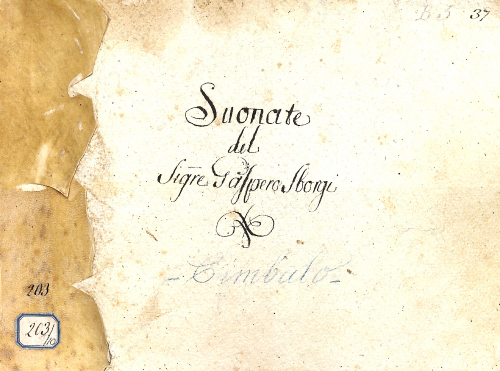 B 3 37
Suonate
del
Sigre Gaspero Sborgi
- Cimbalo -
203
203/10